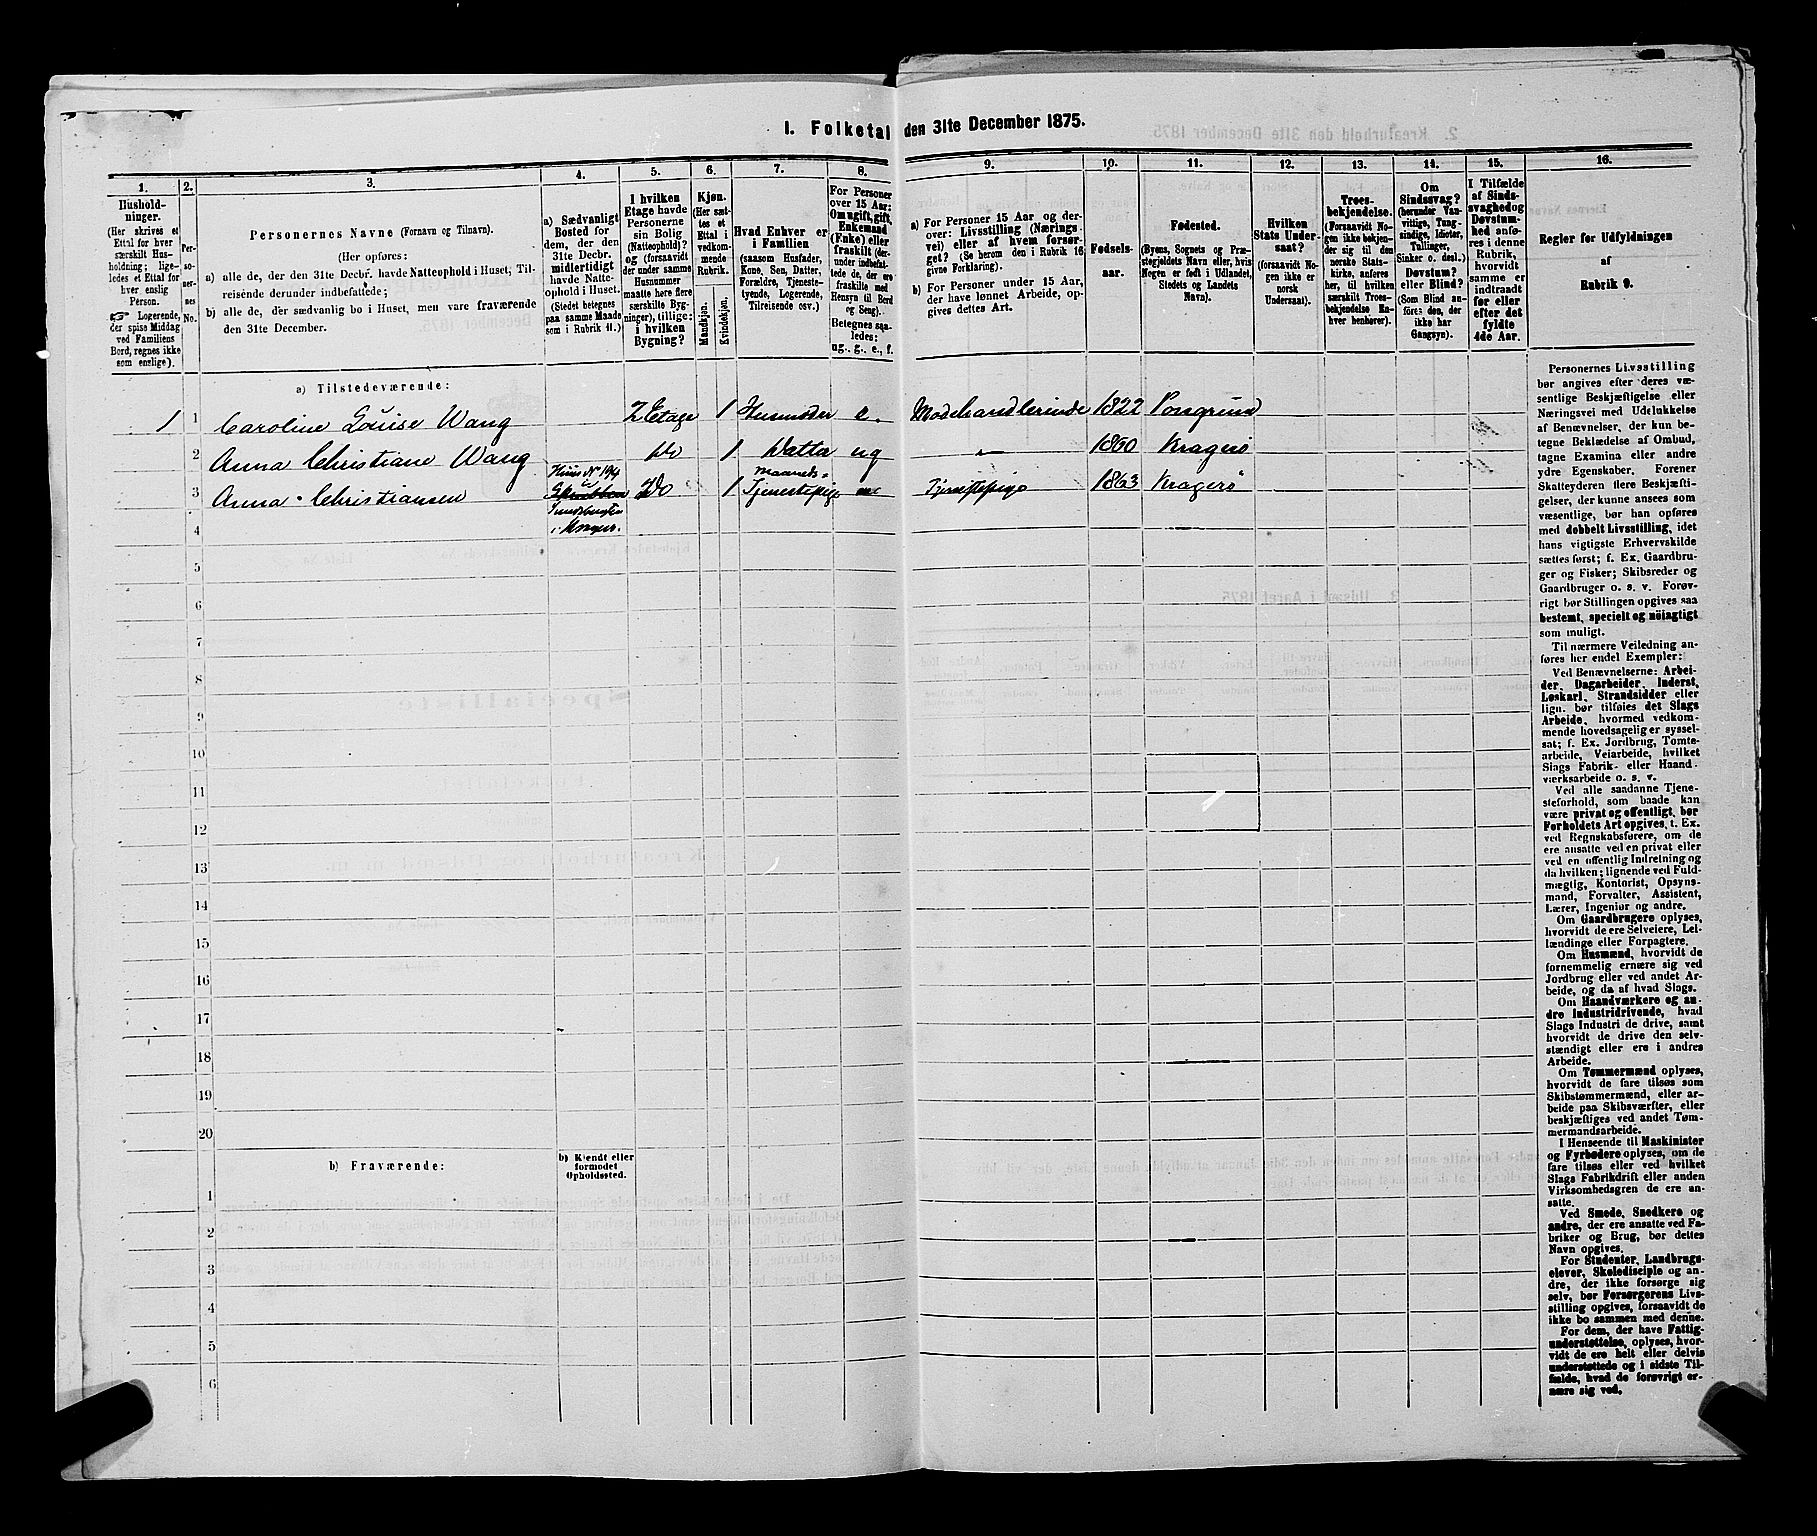 I. Folketal den 31te December 1875.
1. 2. 3. 4. 5. 6. 7. 8. 9. 10. 11. 12. 13. 14. 15. 16.
Hushold-
ninger.
(Her skrives et
Ettal for hver
særskilt Hus-
holdning; lige-
ledes et Ettal for
hver enslig
Person.
☞ Logerende,
der spise Middag
ved Familiens
Bord, regnes ikke
som enslige).
Per-
so-
ner-
nes
No.
Personernes Navne (Fornavn og Tilnavn).
(Her opføres:
a) alle de, der den 31te Decbr. havde Natteophold i Huset, Til-
reisende derunder indbefattede;
b) alle de, der sædvanlig bo i Huset, men vare fraværende
den 31te December.
a) Sædvanligt
Bosted for
dem, der den
31te Decbr.
midlertidigt
havde Natte-
ophold i Huset.
(Stedet betegnes
paa samme Maade
som i Rubrik 11.)
I hvilken
Etage havde
Personerne
sin Bolig
(Natteophold)?
og (forsaavidt
der under samme
Husnummer
maatte høre flere
særskilte Byg-
ninger), tillige:
i hvilken
Bygning?
Kjøn.
(Her sæt-
tes et
Ettal i
vedkom-
mende
Rubrik.
Mandkjøn.
Kvindekjøn.
Hvad Enhver er
i Familien
(saasom Husfader,
Kone, Søn, Datter,
Forældre, Tjeneste-
tyende, Logerende,
Tilreisende osv.)
For Personer
over 15 Aar:
Om ugift, gift,
Enkemand
(Enke) eller
fraskilt (der-
under indbefat-
tede de, der ere
fraskilte med
Hensyn til Bord
og Seng).
Betegnes saa-
ledes:
ug., g., e., f.
a) For Personer 15 Aar og der-
over: Livsstilling (Nærings-
vei) eller af hvem forsør-
get? (Se herom den i Rubrik 16
givne Forklaring).
b) For Personer under 15 Aar,
der have lønnet Arbeide, op-
gives dettes Art.
Fødsels-
aar.
Fødested.
(Byens, Sognets og Præ-
stegjeldets Navn eller, hvis
Nogen er født i Udlandet,
Stedets og Landets
Navn).
Hvilken
Stats Under-
saat?
(forsaavidt No-
gen ikke er
norsk
Undersaat).
Troes-
bekjendelse.
(Forsaavidt No-
gen ikke bekjen-
der sig til den
norske Stats-
kirke, anføres
her, til hvilken
særskilt Troes-
bekjendelse En-
hver henhører).
Om
Sindssvag?
(herunder Van-
vittige, Tung-
sindige, Idioter,
Tullinger,
Sinker o. desl.).
Døvstum?
eller Blind?
(Som Blind an-
føres den, der
ikke har
Gangsyn).
I Tilfælde
af Sinds-
svaghed og
Døvstum-
hed anfø-
res i denne
Rubrik,
hvorvidt
samme er
indtraadt
før eller
efter det
fyldte
4de Aar.
Regler for Udfyldningen
af
Rubrik 9.
a) Tilstedeværende:
1 1 Caroline Louise Wang 2 Etage 1 Husmoder e. Modehandlerinde 1822 Porsgrund
2 Anna Christiane Wang Do 1 Datter ug 1860 Kragerø
Huus No 194
3 Anna Christiansen Do 1 Maaneds-
Tjenestepige Tjenestepige 1863 Kragerø
4
5
6
7
8
9
10
11
12
13
14
15
16
17
18
19
20
b) Fraværende:
b) Kjendt eller
formodet
Opholdssted.
1
2
3
4
5
6
Personernes Livsstilling
bør angives efter deres væ-
sentlige Beskjæftigelse eller
Næringsvei med Udelukkelse
af Benævnelser, der kun be-
tegne Beklædelse af Ombud,
tagne Examina eller andre
ydre Egenskaber. Forener
Skatteyderen flere Beskjæfti-
gelser, der kunne ansees som
væsentlige, bør han opføres
med dobbelt Livsstilling, idet
hans vigtigste Erhvervskilde
sættes først; f. Ex. Gaardbru-
ger og Fisker; Skibsreder og
Gaardbruger o. s. v. Forøv-
rigt bør Stillingen opgives saa
bestemt, specielt og nøiagtigt
som muligt.
Til nærmere Veiledning an-
føres her endel Exempler:
Ved Benævnelserne: Arbei-
der, Dagarbeider, Inderst,
Løskarl, Strandsidder eller
lign. bør tilføies det Slags
Arbeide, hvormed vedkom-
mende hovedsagelig er syssel-
sat; f. Ex. Jordbrug, Tomte-
arbeide, Veiarbeide, hvilket
Slags Fabrik- eller Haand-
værksarbeide o. s. v.
Ved alle saadanne Tjene-
steforhold, som baade kan
være privat og offentligt, bør
Forholdets Art opgives, t. Ex.
ved Regnskabsførere, om de
ere ansatte ved en privat eller
ved en offentlig Indretning og
da hvilken; lignende ved Fuld-
mægtig, Kontorist, Opsyns-
mand, Forvalter, Assistent,
Lærer, Ingeniør og andre.
Om Gaardbrugere oplyses,
hvorvidt de ere Selveiere, Lei-
lændinge eller Forpagtere.
Om Husmænd, hvorvidt de
fornemmelig ernære sig ved
Jordbrug eller ved andet Ar-
beide, og da af hvad Slags.
Om Haandværkere og an-
dre Industridrivende, hvad
Slags Industri de drive, samt
hvorvidt de drive den selv-
stændigt eller ere i andres
Arbeide.
Om Tømmermænd oplyses,
hvorvidt de fare tilsøs som
Skibstømmermænd, eller ar-
beide paa Skibsværfter, eller
beskjæftiges ved andet Tøm-
mermandsarbeide.
I Henseende til Maskinister
og Fyrbødere oplyses, om de
fare tilsøs eller ved hvilket
Slags Fabrikdrift eller anden
Virksomhedsgren de ere an-
satte.
Ved Smede, Snedkere og
andre, der ere ansatte ved Fa-
briker og Brug, bør dettes
Navn opgives.
For Studenter, Landbrugs-
elever, Skoledisciple og an-
dre, der ikke forsørge sig
selv, bør Forsørgerens Livs-
stilling opgives, forsaavidt de
ikke bo sammen med denne.
For dem, der have Fattig-
understøttelse, oplyses, hvor-
vidt de ere helt eller delvis
understøttede og i sidste Til-
fælde, hvad de forøvrigt er-
nære sig ved.